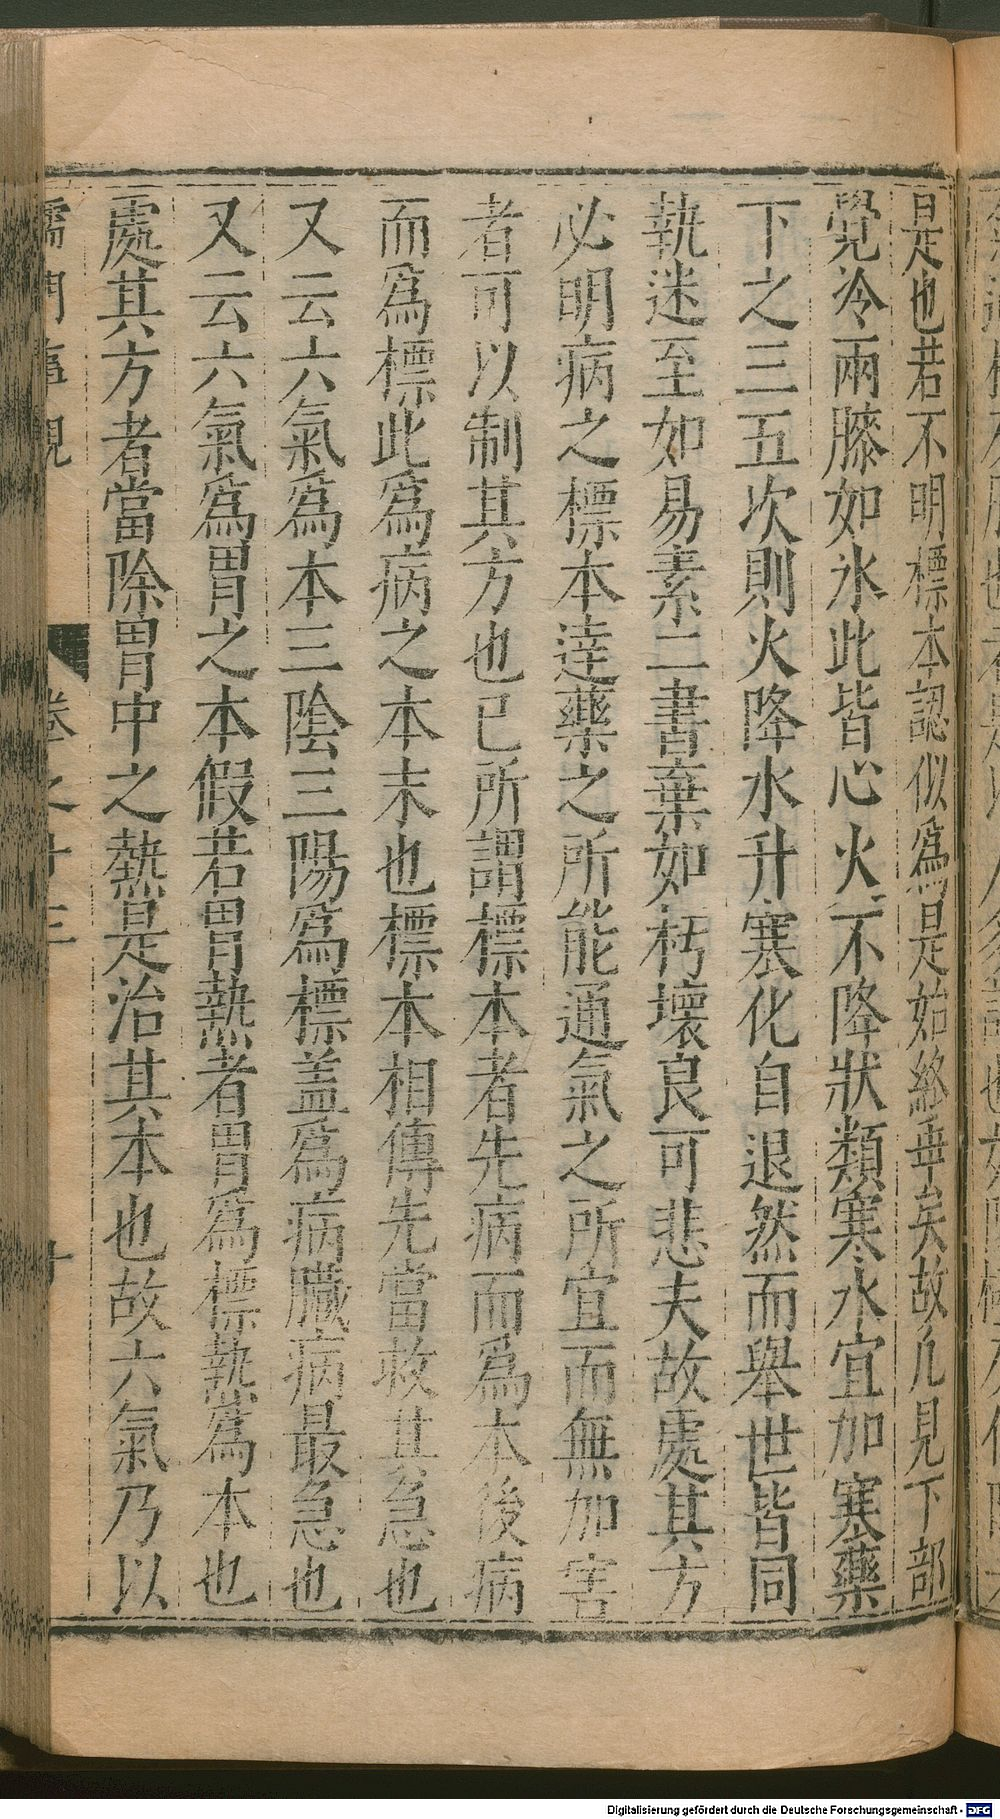 是也若不明標本認似爲是始終乖矣故凡見下部
覺冷兩膝如氷此皆心火不降狀類寒水宜加寒藥
下之三五次則火降水升寒化自退然而舉世皆同
執迷至如易素二書棄如朽壞良可悲夫故處其方
必明病之標本達藥之所能通氣之所宜而無加害
者可以制其方也已所謂標本者先病而爲本後病
而爲標此爲病之本末也標本相傳先當救其急也
又云六氣爲本三陰三陽爲標盖爲病臟病最急也
又云六氣爲胃之本假若胃熱者胃爲標熱爲本也
處其方者當除胃中之熱是治其本也故六氣乃以
儒門事親 卷之十三 十
Digitalisierung gefördert durch die Deutsche Forschungsgemeinschaft - DFG